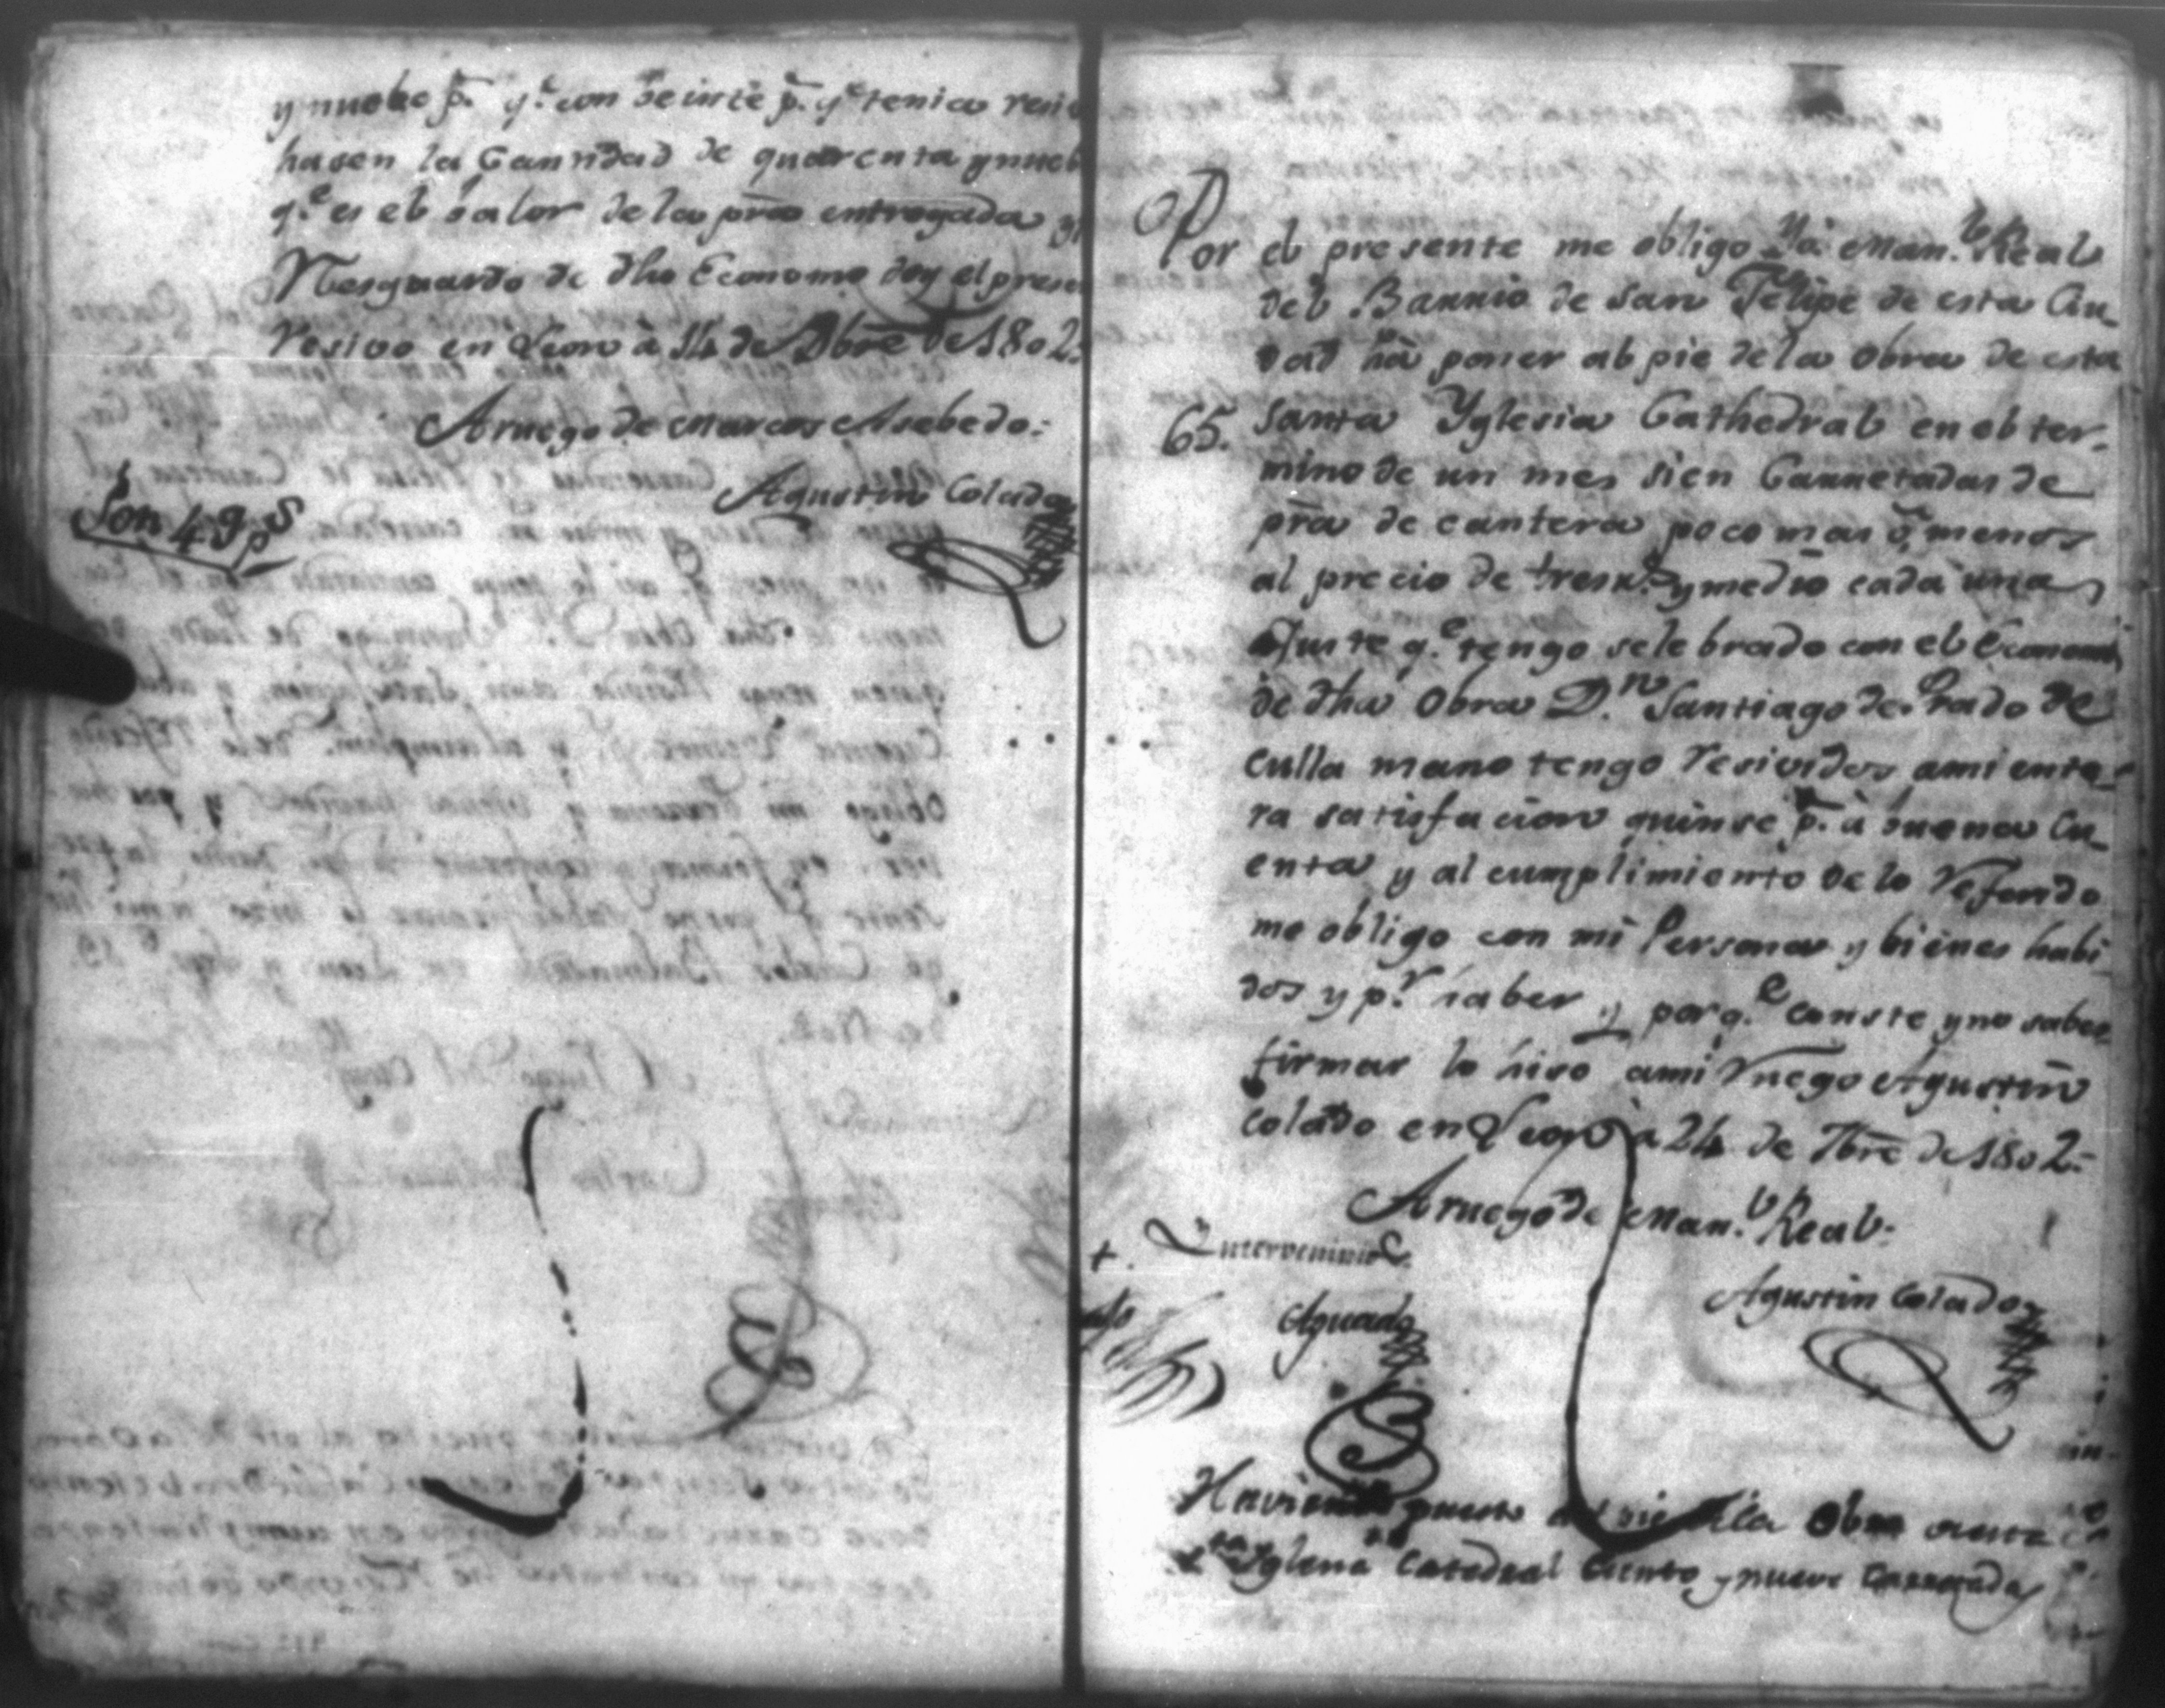 y nuebe p.s q.e con beinte p.s q.e tenia resi
hasen la Cantidad de quarenta y nueb
q.e es el balor de la pra entregada y
Resguardo de dho Economo doy el prese
Resivo en Leon à 14 de Dbre de 1802.
A ruego de Marcos Asebedo.
Agustin Colado
Son 49 p.s
Por el presente me obligo Yò Man.l Real
del Barrio de San Felipe de esta Ciu
dad hà poner al pie de la obra de esta
65. Santa Yglesia Cathedral en el ter-
mino de un mes sien Carretadas de
pra de cantera poco mas ò menos
al precio de tres r.s y medio cada una
Ajuste q.e tengo selebrado con el Economo
de dha Obra D.n Santiago de Prado de
culla mano tengo resividos a mi ente-
ra satisfacion quinse p.s à buena Cu
enta y al cumplimiento de lo Referido
me obligo con mi Persona y bienes habi
dos y p.r haber y porq.e conste y no saber
firmar lo hiso a mi Ruego Agustin
Colado en Leon à 24 de 7bre de 1802.
A ruego de Man.l Real.
Intervenimos
Aguado
Agustin Colado
Haviendo puesto al pie de la Obra de esta
S.ta Yglesia Catedral Ciento y nueve Carretadas